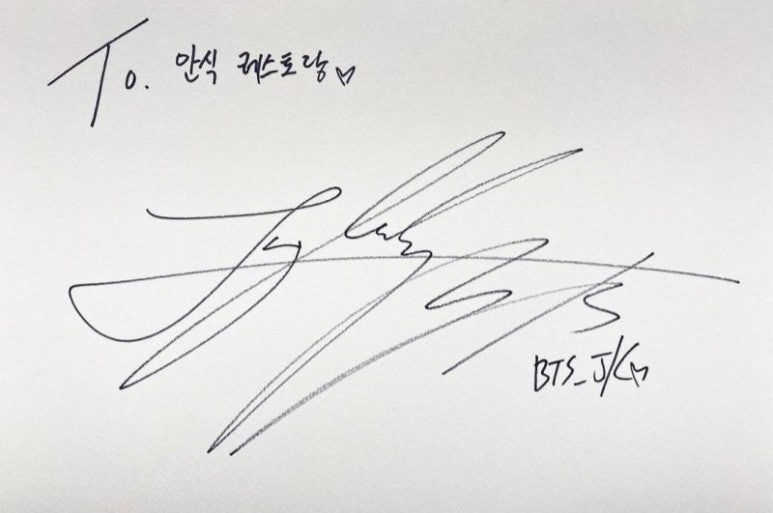 To. 안식 레스토랑♡
BTS_J/K♡